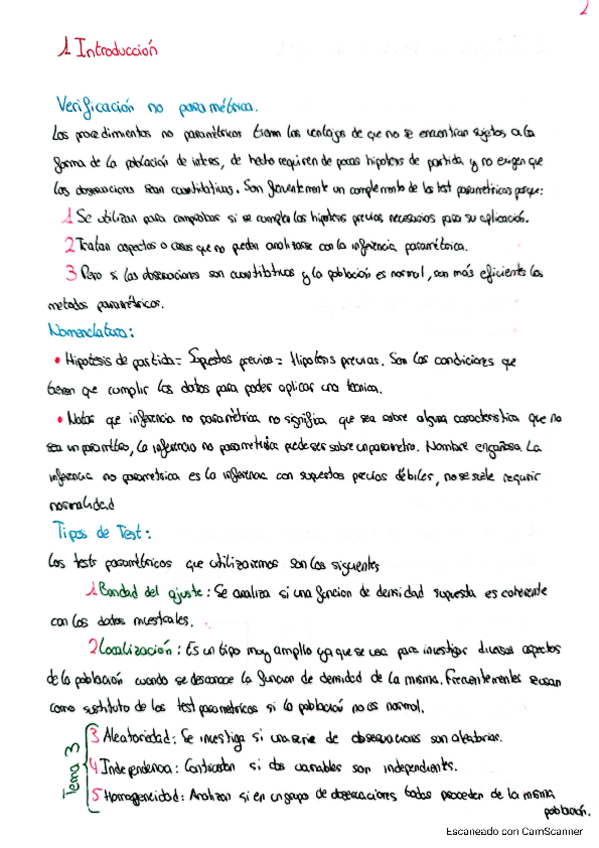 2
1 Introducción
Verificación no paramétrica.
Los procedimientos no paramétricos tienen las ventajas de que no se encuentran sujetos a la
forma de la población de interes, de hecho requiren de pocas hipotesis de partida y no exigen que
las observaciones sean cuantitativas. Son frecuentemente un complemento de los test parametricos porque:
1 Se utilizan para comprobar si se cumplen las hipotesis previas necesarias para su aplicación.
2 Tratan aspectos o casos que no pueden analizarse con la inferencia paramétrica.
3 Pero si las observaciones son cuantitativas y la población es normal, son más eficientes los
metodos paramétricos.
Nomenclatura:
• Hipotesis de partida = Supuestos previos = Hipotesis previas. Son las condiciones que
tienen que cumplir los datos para poder aplicar una tecnica.
• Notar que inferencia no paramétrica no significa que sea sobre alguna caracteristica que no
sea un parametro, la inferencia no parametrica puede ser sobre un parametro. Nombre engañoso. La
inferencia no parametrica es la inferencia con supuestos previos débiles, no se suele requirir
normalidad
Tipos de Test:
Los tests paramétricos que utilizaremos son los siguentes
1 Bondad del ajuste: Se analiza si una funcion de densidad supuesta es coherente
con los datos muestrales.
2 Localización: Es un tipo muy amplio ya que se usa para investigar diversos aspectos
de la población cuando se desconoce la funcion de densidad de la misma. Frecuentemente se usan
como sustituto de los test parametricos si la población no es normal.
Tema 3
3 Aleatoriedad: Se investiga si una serie de observaciones son aleatorias.
4 Independencia: Contrastan si dos variables son independientes.
5 Homogeneidad: Analizan si en un grupo de observaciones todas proceden de la misma
población.
Escaneado con CamScanner